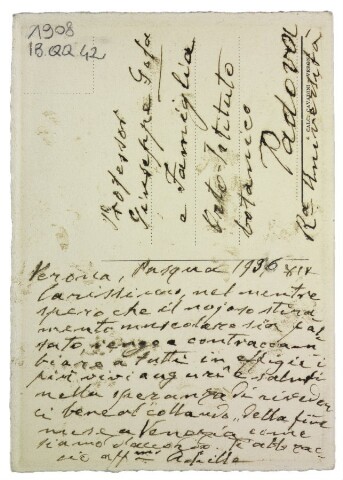 1908
13.QQ 42
Professor
Giuseppe Gola
e Famiglia
Orto-Istituto
botanico
Padova
Ra Università
Verona, Pasqua 1936 XIV
Carissimo, nel mentre
spero che il nojoso stira
mento muscolare sia pas
sato, vengo a contraccam
biare a tutti in effigie i
più vivi auguri e saluti
nella speranza di riveder
ci bene in collaud. della fine
mese a Venezia come
siamo d'accordo. Ti abbrac
cio aff.mo Achille